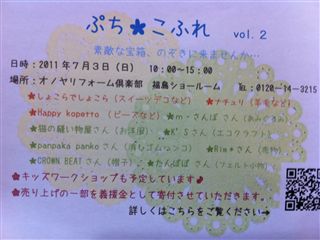 ぷち★こふれ vol.2
素敵な宝箱、のぞきに来ませんか…
日時：2011年7月3日（日） 10:00～15:00
場所：オノヤリフォーム倶楽部 福島ショールーム Tel. 0120-14-3215
★しょこらでしょこら（スイーツデコなど） ★ナチュリ（羊毛など）
★Happy kopetto（ビーズなど） ★m・さんぽ さん（あみぐるみ）
★猫の縫い物屋さん（お洋服） ★K'S さん（エコクラフト）
★panpaka panko さん（消しゴムハンコ） ★Rim* さん（布物）
★CROWN BEAT さん（帽子） ★たんぽぽ さん（フェルト小物）
★キッズワークショップも予定しています
★売り上げの一部を義援金として寄付させていただきます。
詳しくはこちらをご覧ください→